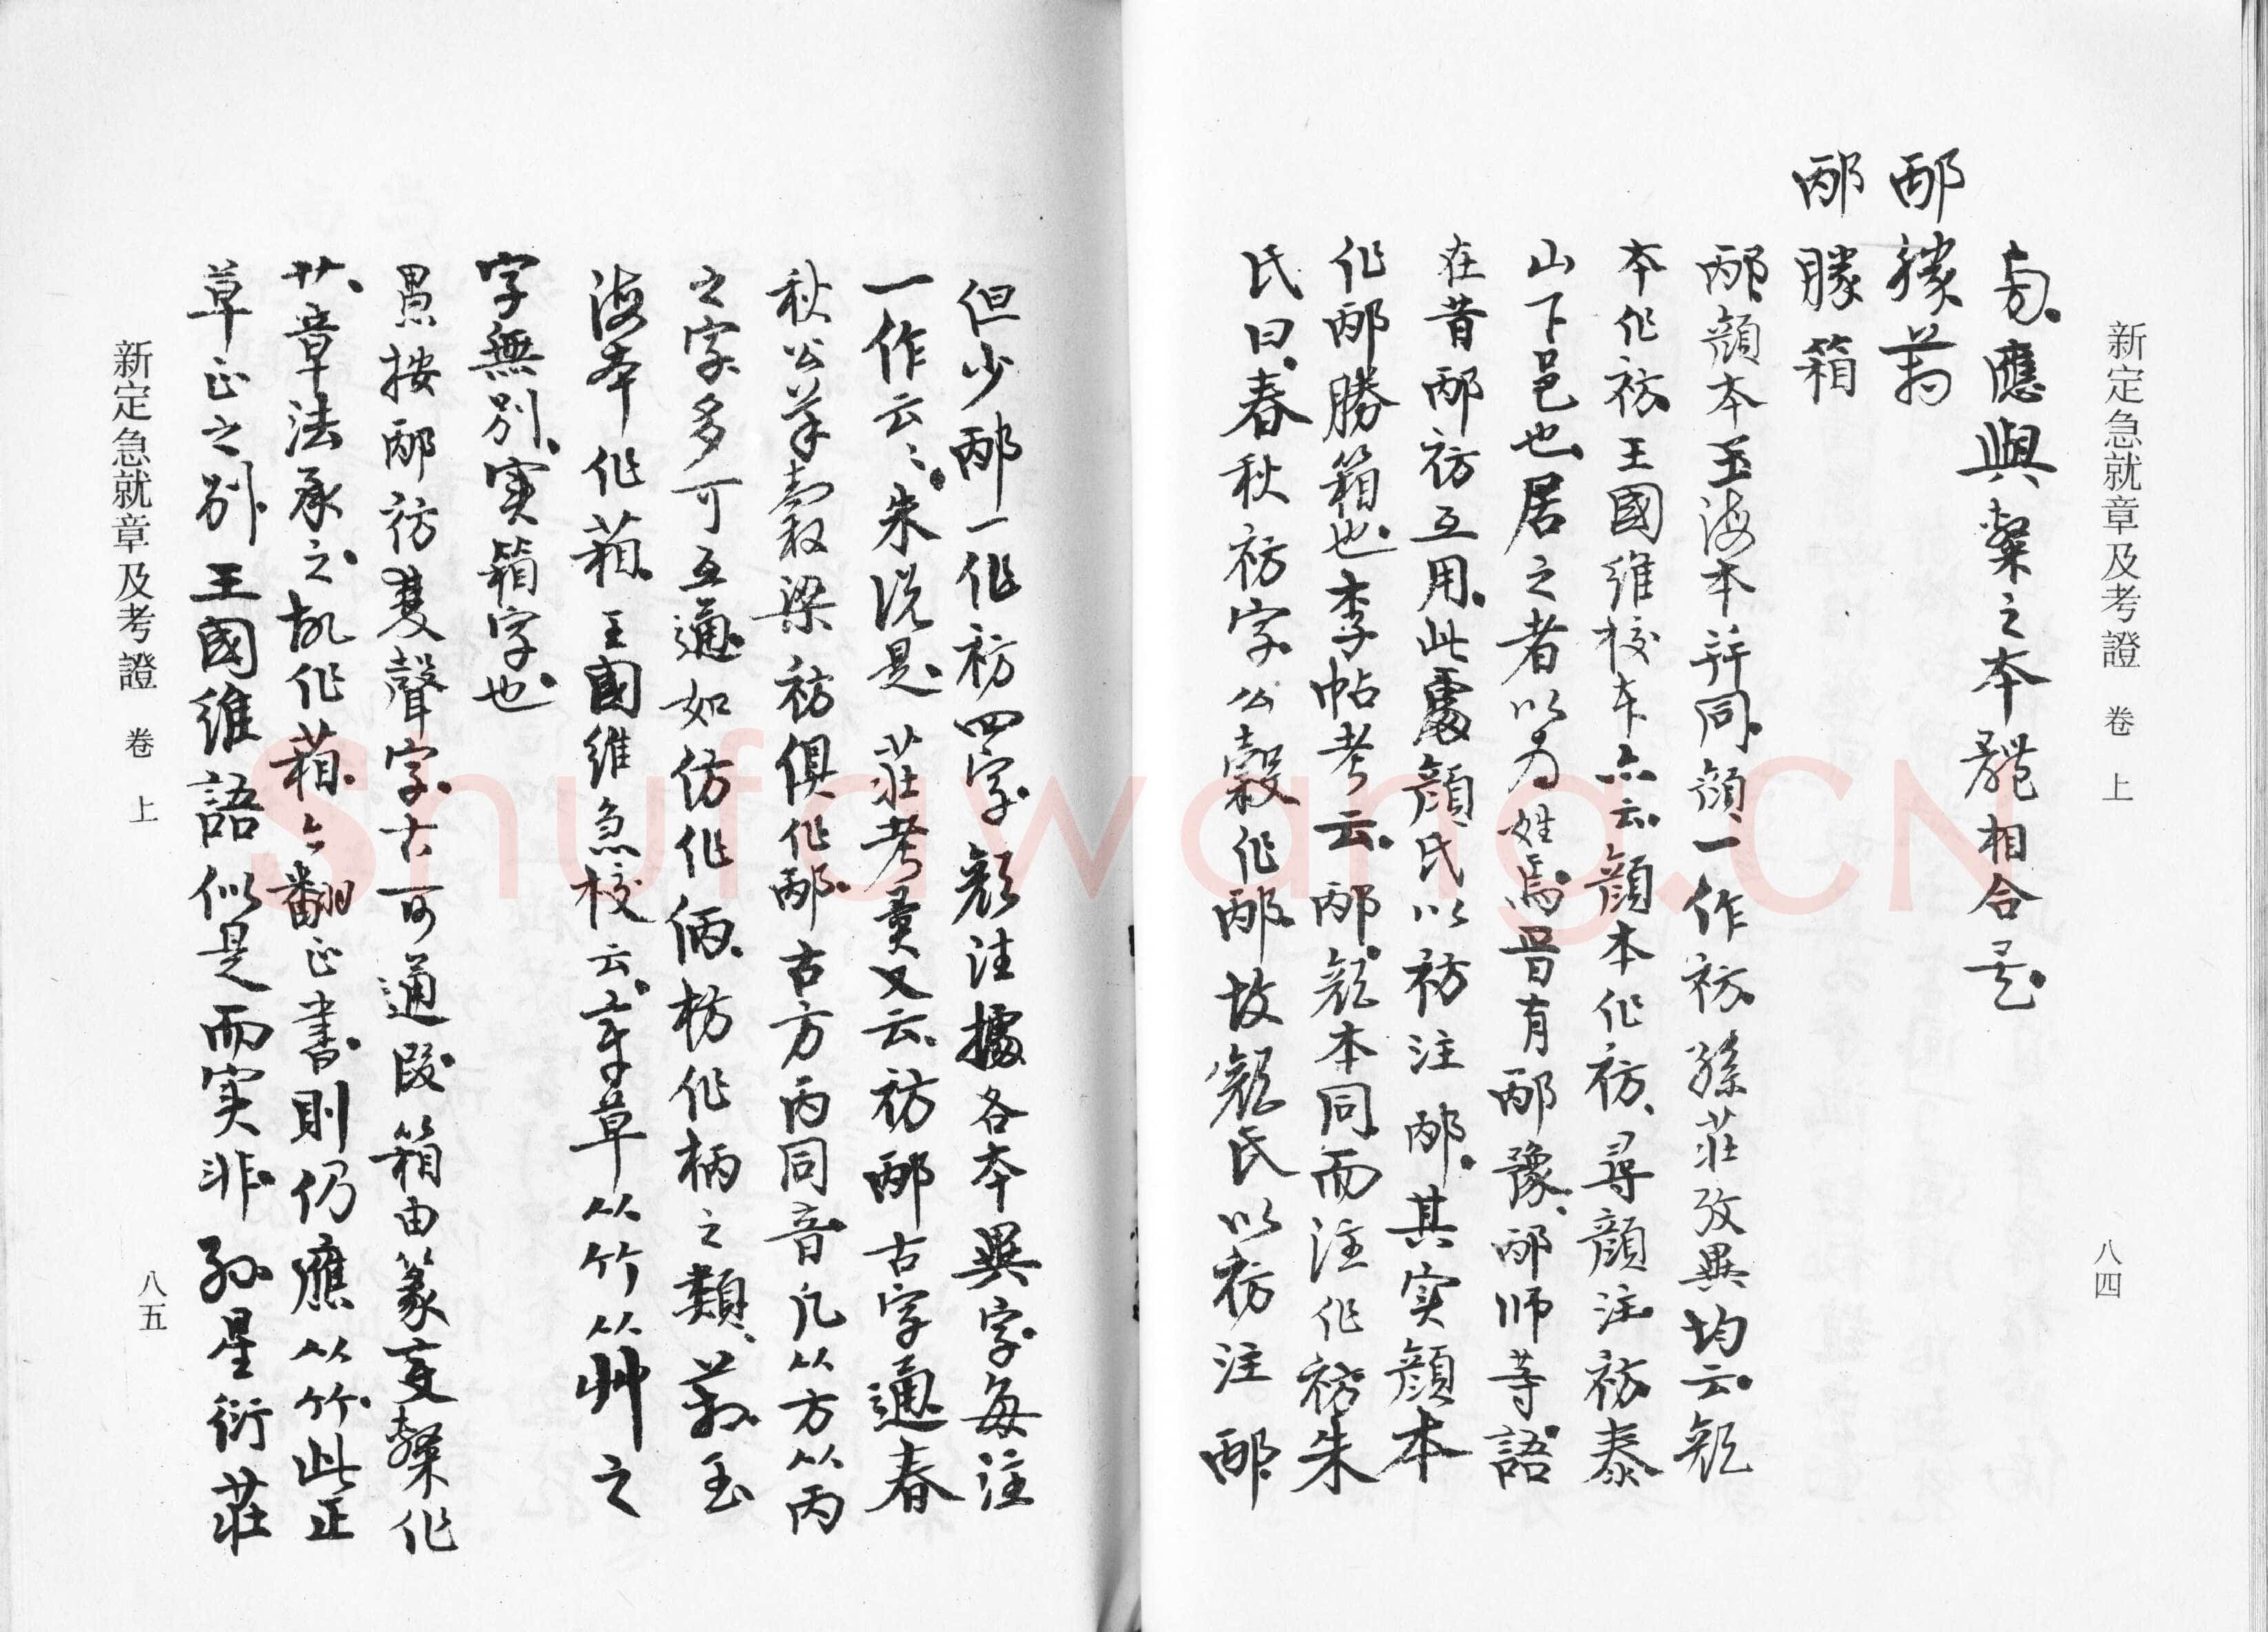 新定急就章及考證 卷上
八四
應與隸之本體相合是
邴勝箱
邴勝箱
邴顏本玉海本并同顏一作祊孫莊攷異均云顏
本作祊王國維校本亦云顏本作祊尋顏注祊泰
山下邑也居之者以為姓焉晉有邴豫邴師等語
在昔邴祊互用此處顏氏以祊注邴其实顏本
作邴勝箱也李帖考云邴顏本同而注作祊朱
氏曰春秋祊字公穀作邴故顏氏以祊注邴
但少邴一作祊四字顏注據各本異字每注
一作云云朱说是莊考異又云祊邴古字通春
秋公羊穀梁祊俱作邴古方丙同音凡从方从丙
之字多可互通如仿作㑂枋作柄之類箱玉
海本作葙王國維急校云章草从竹从艸之
字無別实箱字也
愚按邴祊雙聲字古可通叚箱由篆变隸作
艹章法承之故作葙今翻正書則仍應从竹此正
草正之別王國維語似是而实非孙星衍莊
新定急就章及考證 卷上
八五
Shufawang.CN